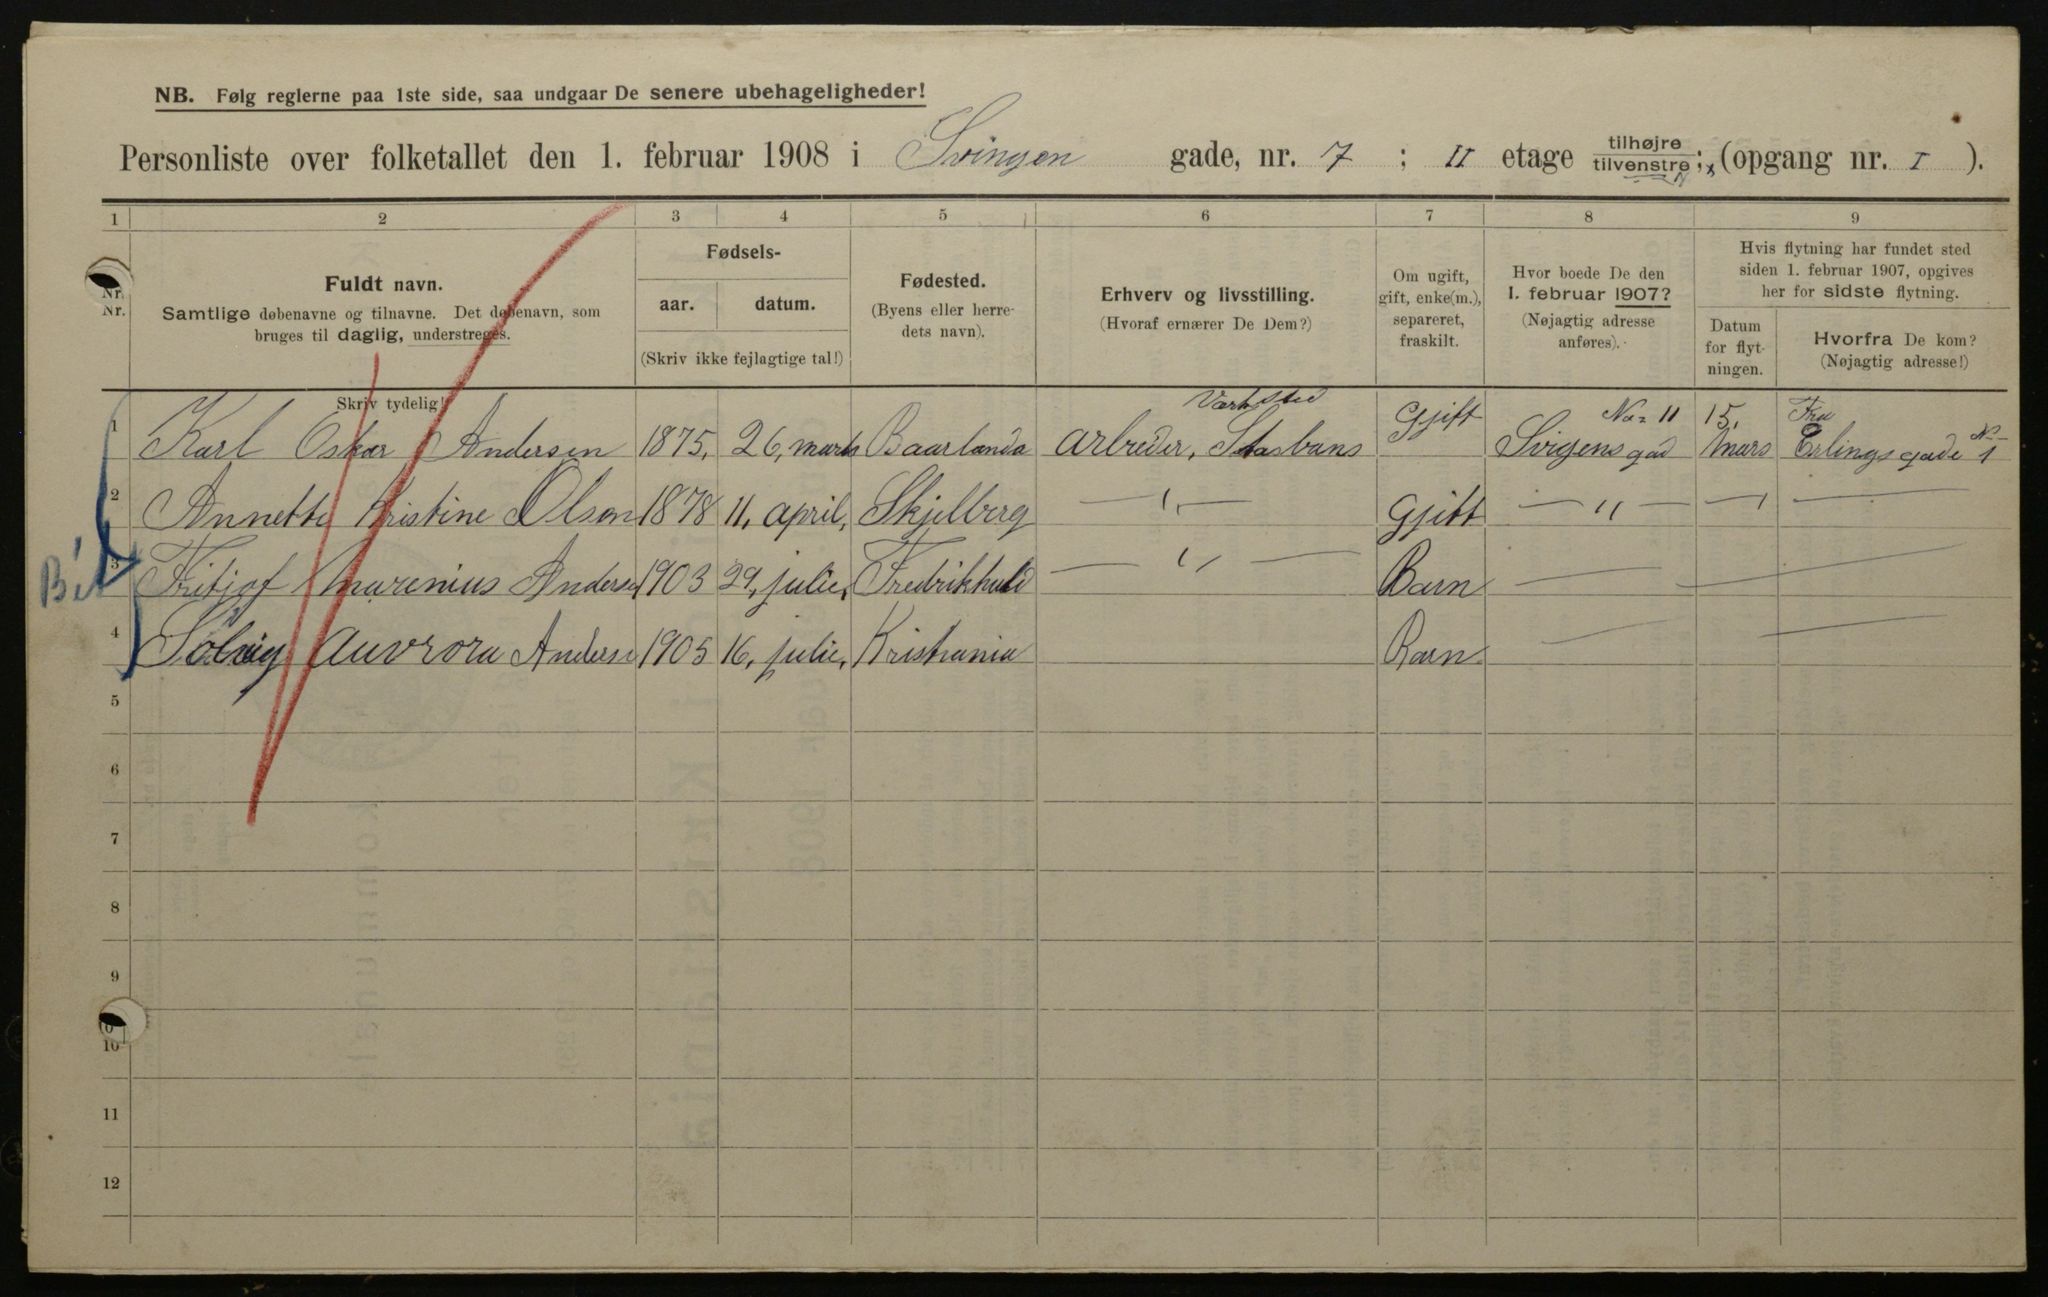 NB. Følg reglerne paa 1ste side, saa undgaar De senere ubehageligheder!
Personliste over folketallet den 1. februar 1908 i Svingen gade, nr. 7 ; II etage tilhøjre tilvenstre; (opgang nr. I ).
1 2 3 4 5 6 7 8 9
Nr. Nr.
Fuldt navn.
Samtlige døbenavne og tilnavne. Det døbenavn, som
bruges til daglig, understreges.
Skriv tydelig!
Fødsels-
aar. datum.
(Skriv ikke fejlagtige tal!)
Fødested.
(Byens eller herre-
dets navn).
Erhverv og livsstilling.
(Hvoraf ernærer De Dem?)
Om ugift,
gift, enke(m.),
separeret,
fraskilt.
Hvor boede De den
1. februar 1907?
(Nøjagtig adresse
anføres).
Hvis flytning har fundet sted
siden 1. februar 1907, opgives
her for sidste flytning.
Datum
for flyt-
ningen.
Hvorfra De kom?
(Nøjagtig adresse!)
Værksted No 11 15, Fra No
1 Karl Oskar Andersen 1875, 26, marts Baarlanda Arbeider, Stasbans Gjift Svigens gad Mars Erlings gade 1
2 Annette Kristine Olsen 1878 11, april, Skjelberg — " — Gjift — " — — —
3 Fritjof Marenius Anderse 1903 29, julie, Fredrikhald — " — Barn — —
4 Solvig Auvrora Anderse 1905 16, julie, Kristiania Barn — —
5
6
7
8
9
10
11
12